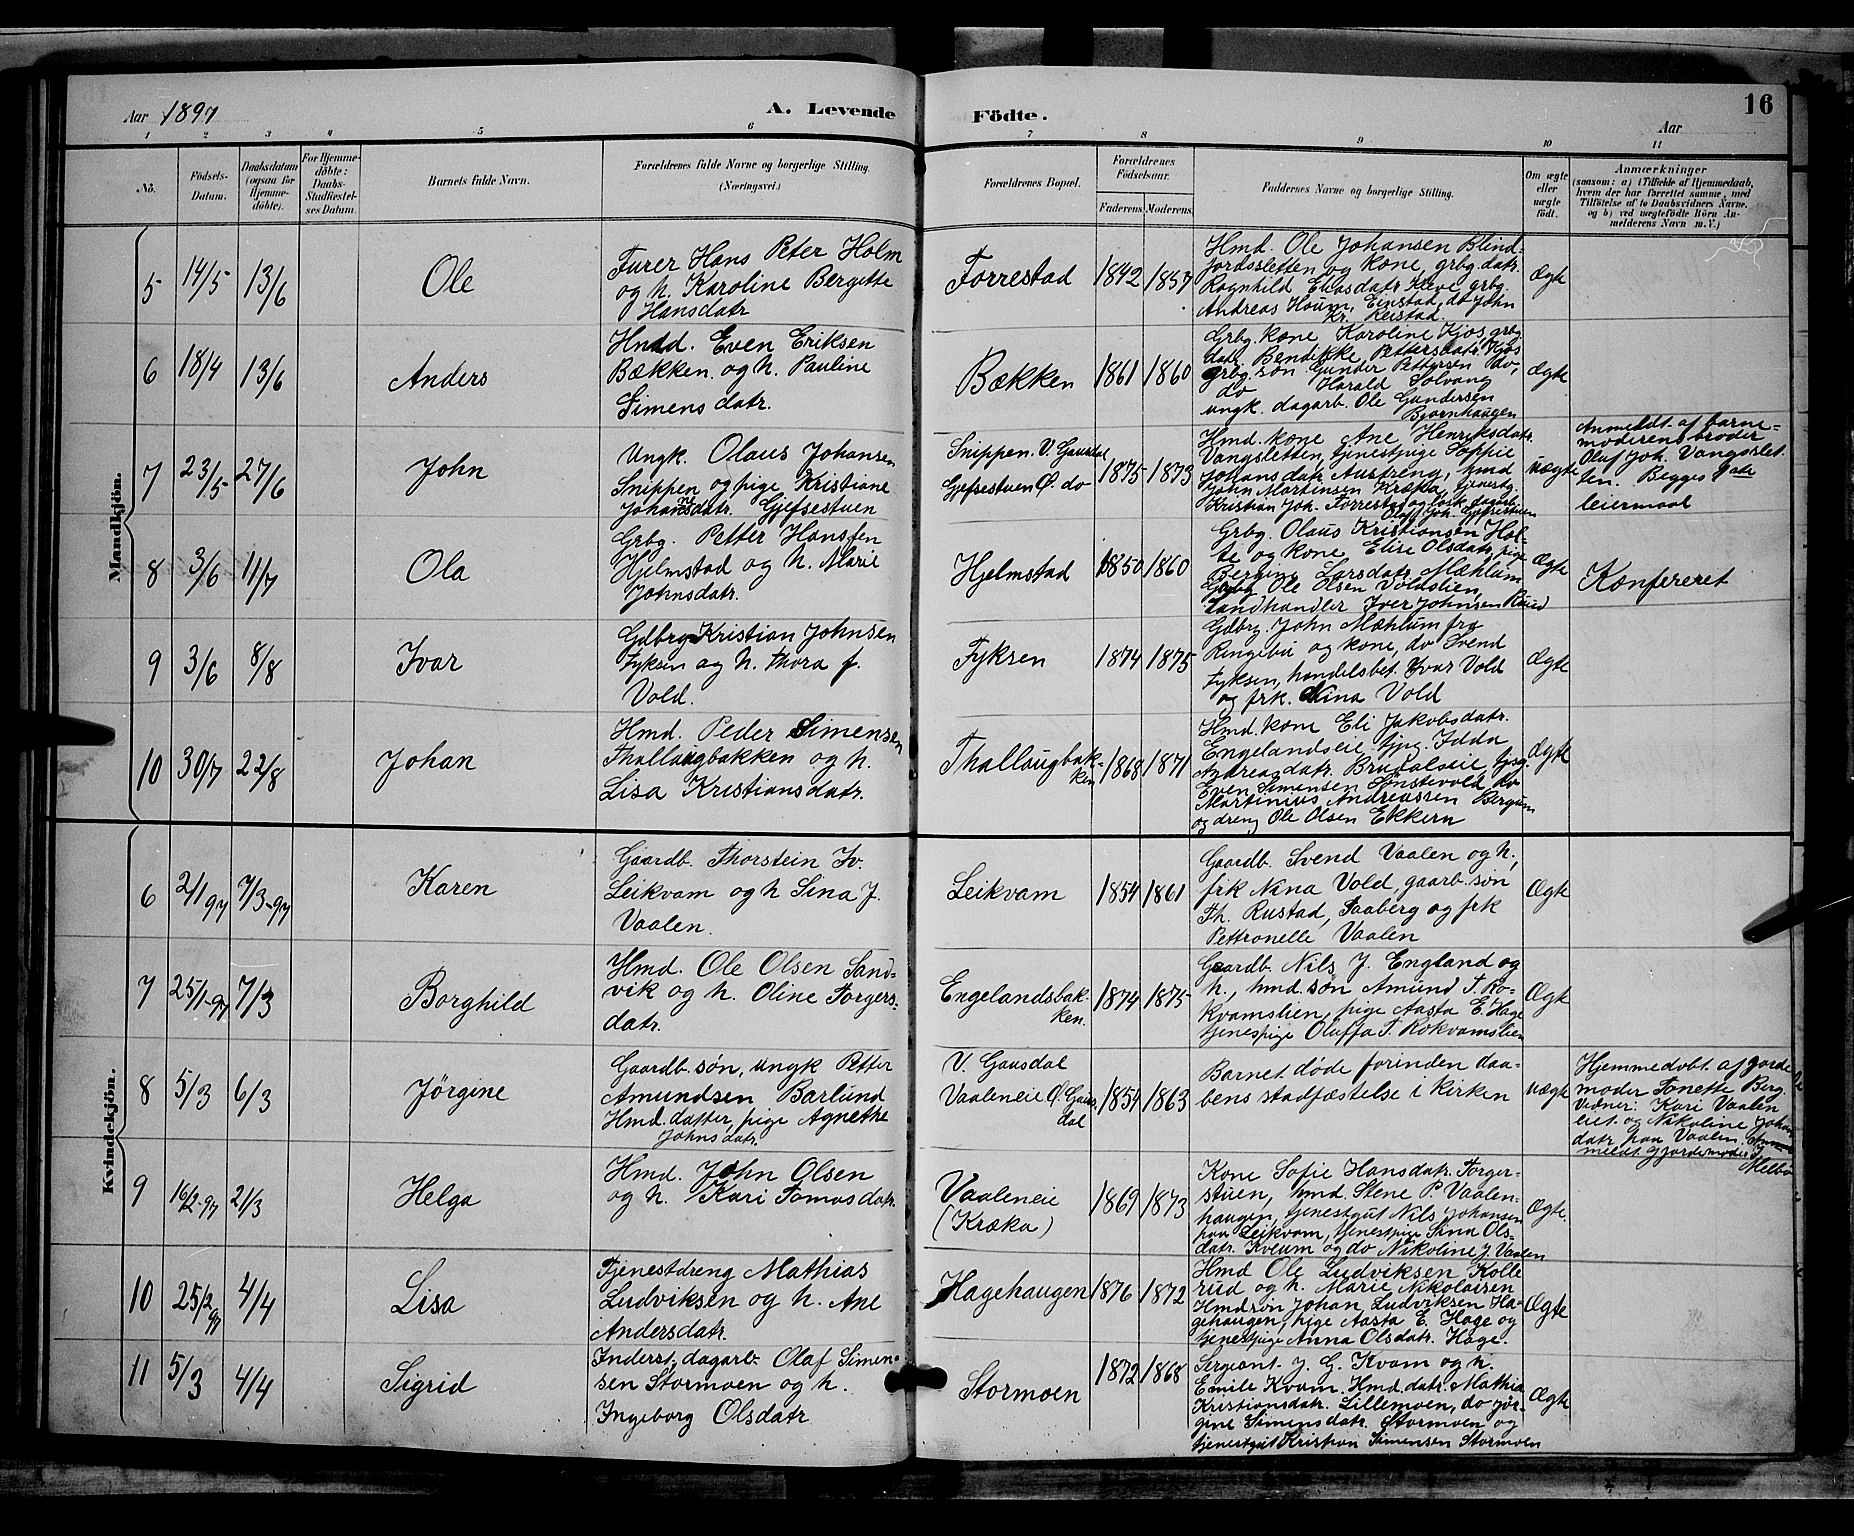 Aar 1897
A. Levende Födte.
Aar
16
1 2 3 4 5 6 7 8 9 10 11
No.
Födsels-
Datum.
Daabsdatum
(ogsaa for
Hjemme-
döbte).
For Hjemme-
döbte:
Daabs-
Stadfæstel-
ses Datum.
Barnets fulde Navn.
Forældrenes fulde Navne og borgerlige Stilling.
(Næringsvei.)
Forældrenes Bopæl.
Forældrenes
Födselsaar.
Faderens. Moderens.
Faddernes Navne og borgerlige Stilling.
Om ægte
eller
uægte
födt.
Anmærkninger
(saasom: a) i Tilfælde af Hjemmedaab,
hvem der har forrettet samme, med
Tilföielse af to Daabsvidners Navne,
og b) ved uægtefödte Börn An-
melderens Navn m. V.)
Mandkjön.
5 14/5 13/6
Ole
Furer Hans Peter Holm
og h. Karoline Bergitte
Hansdatr
Forrestad
1842 1857
Hmd. Ole Johansen Blind-
jordssletten og kone, grbg.datr.
Ragnhild Eliasdatr Kleve grbg.
Andreas Houm, Einstad, do John
Kr. Reistad.
Ægte
6 18/4 13/6
Anders
Hmd. Even Eriksen
Bækken og h. Pauline
Simensdatr.
Bækken
1861 1860
Grbg. kone Karoline Kjos, grbg
datr. Bendikke Pettersdatr. Kjos
grbg søn Gunder Pettersen do,
do Harald Solvang
ungk. dagarb. Ole Gundersen
Bjørnhaugen
Ægte
7 23/5 27/6
John
Ungk. Olaus Johansen
Snippen og pige Kristiane
Johannsdatr. Gjefsestuen
Snippen. V. Gausdal
Gjefsestuen Ø. do
1875 1873
Hmd. kone Ane Henriksdatr.
Vangsletten, tjenestpige Soppie
Johansdatr Austreng, hmd
John Martinsen Kræka, tjenestg.
Kristian Joh. Forrestad og
Olaf Joh. Gjefsestuen
uægte
Anmeldt af barne-
moderens broder
Olaf Joh. Vangsslet-
ten. Begges 1ste
leiermaal
8 3/6 11/7
Ola
Grbg. Petter Hansen
Hjelmstad og h. Marie
Johnsdatr.
Hjelmstad
1850 1860
Grbg. Olaus Kristiansen Hol-
te og kone Elise Olsdatr, pige
Bergine Larsdatr. Mæhlum
Grbg Ole Olsen Voldslien,
Landhandler Iver Johnsen Ruud
Ægte
Konfereret
9 3/6 8/8
Ivar
Gdbrg Kristian Johnsen
Fyksen og h. Thora f.
Vold.
Fyksen
1874 1875
Gdbrg. John Mæhlum fra
Ringebu og kone, do Svend
Fyksen, handelsbet. Ivar Vold
og frk. Nina Vold
Ægte
10 30/7 22/8
Johan
Hmd. Peder Simensen
Thallaugbakken og h.
Lisa Kristiansdatr.
Thallaugbak-
ken
1868 1871
Hmd. kone Eli Jakobsdatr.
Engelandseie, tjpg. Idda
Andreasdatr. Brudalseie tjsg.
Even Simensen Synstevold, do
Martinius Andreassen Bergum
og dreng Ole Olsen Ekkern
Ægte
Kvindekjön.
6 2/1 97 7/3-97
Karen
Gaardb. Thorstein Iv.
Leikvam og h Sina J.
Vaalen.
Leikvam
1854 1861
Gaardb. Svend Vaalen og h,
frk Nina Vold, gaarb. søn
Th. Rustad, Faaberg og frk
Pettronelle Vaalen
Ægte
7 25/1-97 7/3
Borghild
Hmd. Ole Olsen Sand-
vik og h. Oline Torgers-
datr.
Engelandsbak-
ken.
1874 1875
Gaardb. Nils J. England og
h, hmd. søn Amund T. Ro-
kvamslien, pige Aasta E. Hage
tjenespige Oluffa T. Rokvamslien
Ægte
8 5/3 6/3
Jörgine
Gaardb. søn, ungk Petter
Amundsen Barlund
Hmd. datter, pige Agnethe
Johnsdatr.
V. Gausdal
Vaaleneie Ø. Gaus-
dal
1854 1863
Barnet døde forinden daa-
bens stadfæstelse i kirken
uægte
Hjemmedøbt af jorde
moder Tonette Berg.
Vidner: Kari Vaalen
eiet og Nikoline Johan
datr paa Vaalen.
meldt gjordemoder
9 16/2-97 21/3
Helga
Hmd. John Olsen
og h. Kari Tomasdatr.
Vaaleneie
(Kræka)
1869 1873
Kone Sofie Hansdatr. Torger-
stuen, hmd. Stene P. Vaalen-
haugen, tjenestgut Nils Johansen
paa Leikvam, tjenestpige Sina Ols-
datr. Kveum og do Nikoline J. Vaalen
Ægte.
10 25/2 97 4/4
Lisa
Tjenestdreng Mathias
Ludviksen og h. Ane
Andersdatr.
Hagehaugen
1876 1872
Hmd Ole Ludviksen Kolle
rud og h. Marie Nikolaisen
Hmdsøn Johan Ludviksen Ha-
gehaugen, pige Aasta E. Hage og
tjenestpige Anna Olsdatr. Hage.
Ægte
11 5/3 4/4
Sigrid
Inderst, dagarb. Olaf Simen-
sen Stormoen og h.
Ingeborg Olsdatr
Stormoen
1872 1868
Sergeant J. G. Kvam og h.
Emile Kvam. Hmd. datr. Mathia
Kristiansdatr. Lillemoen, do Jør-
gine Simensdatr. Stormoen og
tjenestgut Kristian Simensen Stormoen
Ægte